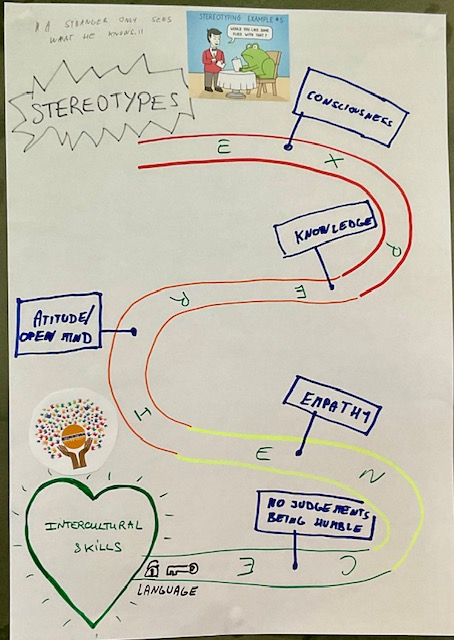 "A STRANGER ONLY SEES
WHAT HE KNOWS"
STEREOTYPING EXAMPLE #5
WOULD YOU LIKE SOME
FLIES WITH THAT?
STEREOTYPES
CONSCIOUSNESS
KNOWLEDGE
ATITUDE/
OPEN MIND
EMPATHY
NO JUDGEMENTS
BEING HUMBLE
EXPERIENCE
INTERCULTURAL
SKILLS
LANGUAGE